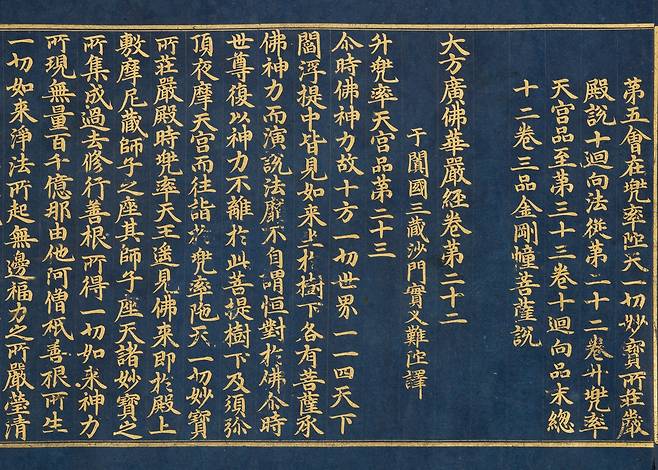 第五會在兜率陁天一切妙寶所莊嚴
殿說十迴向法從第二十二卷升兜率
天宮品至第三十三卷十迴向品末緫
十二卷三品金剛幢菩薩說
大方廣佛華嚴經卷第二十二
于闐國三藏沙門實叉難陁譯
升兜率天宮品第二十三
尒時佛神力故十方一切世界一一四天下
閻浮提中皆見如來坐於樹下各有菩薩承
佛神力而演說法靡不自謂恒對於佛尒時
世尊復以神力不離於此菩提樹下及須弥
頂夜摩天宮而往詣於兜率陁天一切妙寶
所莊嚴殿時兜率天王遙見佛來即於殿上
敷摩尼藏師子之座其師子座天諸妙寶之
所集成過去修行善根所得一切如來神力
所現無量百千億那由他阿僧祇善根所生
一切如來淨法所起無邊福力之所嚴瑩清